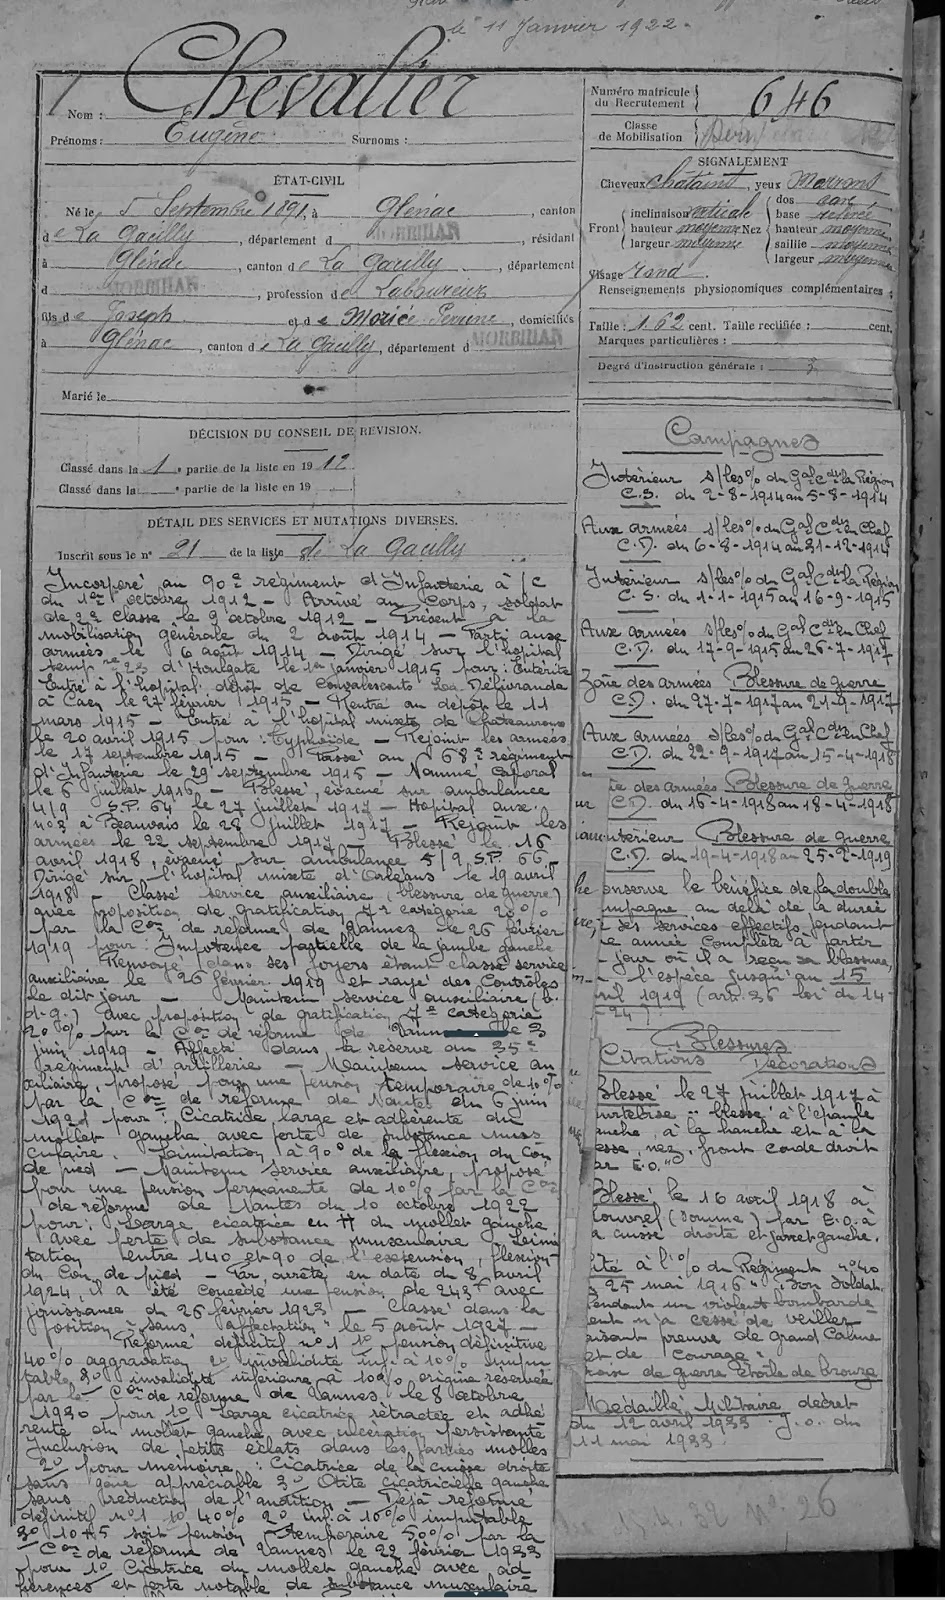 le 11 Janvier 1922.
Nom : Chevalier
Prénoms : Eugène Surnoms :
ÉTAT-CIVIL
Né le 5 Septembre 1891, à Glénac, canton
de La Gacilly, département d MORBIHAN, résidant
à Glénac, canton de La Gacilly, département
d MORBIHAN, profession de Laboureur
fils de Joseph et de Morice Perrine, domiciliés
à Glénac, canton de La Gacilly, département d MORBIHAN
Marié le
DÉCISION DU CONSEIL DE RÉVISION.
Classé dans la 1e partie de la liste en 1912
Classé dans la e partie de la liste en 19
DÉTAIL DES SERVICES ET MUTATIONS DIVERSES.
Inscrit sous le n° 21 de la liste de La Gacilly
Incorporé au 90e régiment d'Infanterie à /c
du 1er octobre 1912 – Arrivé au Corps, soldat
de 2e classe le 9 octobre 1912 – Présent à la
mobilisation générale du 2 août 1914 – Parti aux
armées le 6 août 1914 – Dirigé sur l'hôpital
temp re 23 d'Houlgate le 1er janvier 1915 pour : Entérite
Entré à l'hôpital dépôt de Convalescents La Délivrande
à Caen le 27 février 1915 – Rentré au dépôt le 11
mars 1915 – Entré à l'hôpital mixte de Châteauroux
le 20 avril 1915 pour : Typhoïde – Rejoint les armées
le 17 septembre 1915 – Passé au 68e régiment
d'Infanterie le 29 septembre 1915 – Nommé Caporal
le 6 juillet 1916 – Blessé, évacué sur ambulance
4/9 S.P. 64 le 27 juillet 1917 – Hôpital aux.
n° 3 à Beauvais le 28 juillet 1917 – Rejoint les
armées le 22 septembre 1917 – Blessé le 16
avril 1918, évacué sur ambulance 5/9 S.P. 66 –
Dirigé sur l'hôpital mixte d'Orléans le 19 avril
1918 – Classé service auxiliaire (blessure de guerre)
avec proposition de gratification 7e catégorie 20%
par la Con de réforme de Vannes le 26 février
1919 pour : Impotence partielle de la jambe gauche
Renvoyé dans ses foyers étant classé service
auxiliaire le 26 février 1919 et rayé des Contrôles
le dit jour – Maintenu service auxiliaire (b.
d.g.) avec proposition de gratification 7e catégorie
20% par la Con de réforme de Vannes le 3
juin 1919 – Affecté dans la réserve au 35e
régiment d'artillerie – Maintenu service au
xiliaire, proposé pour une pension temporaire de 10%
par la Con de réforme de Nantes du 6 juin
1921 pour : Cicatrice large et adhérente du
mollet gauche avec perte de substance mus-
culaire. Limitation à 90° de la flexion du Cou
de pied – Maintenu service auxiliaire, proposé
pour une pension permanente de 10% par la Con
de réforme de Nantes du 10 octobre 1922
pour : Large cicatrice en H du mollet gauche
avec perte de substance musculaire. Limi
tation entre 140 et 90 de l'extension, flexion
du Cou de pied – Par arrêté en date du 8 avril
1924, il a été concédé une pension de 243f avec
jouissance du 26 février 1923 – Classé dans la
position "sans affectation" le 5 août 1927 –
Réformé définitif n° 1 1° pension définitive
40% aggravation 2° invalidité inf. à 10% impu
table, 3° invalidité inférieure à 10% origine réservée
par la Con de réforme de Vannes le 8 octobre
1930 pour 1° Large cicatrice rétractée et adhé
rente du mollet gauche avec ulcération persistante
Inclusion de petits éclats dans les parties molles
2° pour mémoire : Cicatrice de la cuisse droite
sans gêne appréciable 3° Otite cicatricielle gauche
sans réduction de l'audition – Déjà réformé
définitif n° 1 1° 40% 2° inf. à 10% imputable
3° 10+5 soit pension temporaire 50% par la
Con de réforme de Vannes le 22 février 1933
pour 1° Cicatrice du mollet gauche avec ad
hérences et perte notable de substance musculaire
Numéro matricule
du Recrutement 646
Classe
de Mobilisation
SIGNALEMENT
Cheveux chatains, yeux Marrons
Front inclinaison verticale hauteur moyenne largeur moyenne
Nez dos cave base relevée hauteur moyenne saillie moyenne largeur moyenne
Visage rond.
Renseignements physionomiques complémentaires :
Taille : 1.62 cent. Taille rectifiée : cent.
Marques particulières :
Degré d'instruction générale : 3
Campagnes
Intérieur s/les % du Gal Cdt la Région
C.S. du 2-8-1914 au 5-8-1914
Aux armées s/les % du Gal Cdt en Chef
C.D. du 6-8-1914 au 31-12-1914
Intérieur s/les % du Gal Cdt la Région
C.S. du 1-1-1915 au 16-9-1915
Aux armées s/les % du Gal Cdt en Chef
C.D. du 17-9-1915 au 26-7-1917
Zône des armées Blessure de guerre
C.D. du 27-7-1917 au 21-9-1917
Aux Armées s/les % du Gal Cdt en Chef
C.D. du 22-9-1917 au 15-4-1918
ne des armées Blessure de guerre
C.D. du 16-4-1918 au 18-4-1918
Intérieur Blessure de guerre
C.D. du 19-4-1918 au 25-2-1919
onserve le bénéfice de la double
mpagne au delà de la durée
ses services effectifs pendant
e année complète à partir
jour où il a reçu sa blessure,
l'espèce jusqu'au 15
ril 1919 (art. 36 loi du 14
-24)
Blessures
Citations Décorations
Blessé le 27 juillet 1917 à
urtebise "blessé à l'épaule
auche, à la hanche et à la
esse, nez, front coude droit
ar E.O."
Blessé le 16 avril 1918 à
ouvrel (Somme) par E.O. à
a cuisse droite et jarret gauche.
Cité à l'% du Régiment n° 40
25 mai 1916 "Bon Soldat
Pendant un violent bombarde-
ent n'a cessé de veiller
aisant preuve de grand Calme
et de Courage"
roix de guerre Etoile de bronze
Médaille Militaire décret
du 12 avril 1933 J.O. du
11 mai 1933
N° 26